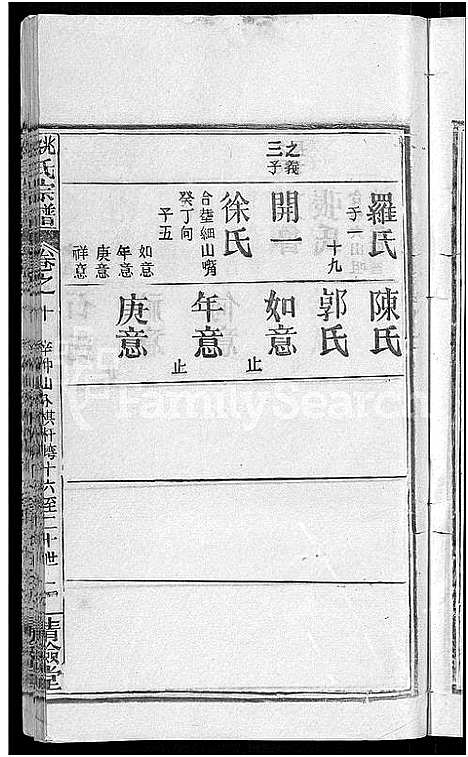 羅氏
子一
十九
之義三子
開一
徐氏
合塟細山嘴
癸丁向
子五
如意
年意
庚意
祥意
陳氏
郭氏
如意
止
年意
止
庚意
姚氏宗譜
卷之十
山外棋杆塆十六至二十世
清儉堂
FamilySearch